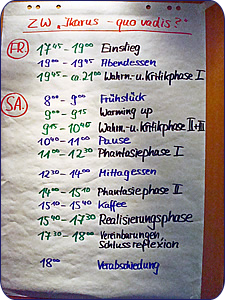 ZW „Ikarus - quo vadis?"
FR. 17⁴⁵ - 19⁰⁰ Einstieg
19⁰⁰ - 19⁴⁵ Abendessen
19⁴⁵ - ca. 21⁰⁰ Wahrn.-u. Kritikphase I
SA. 8⁰⁰ - 9⁰⁰ Frühstück
9⁰⁰ - 9¹⁵ Warming up
9¹⁵ - 10⁴⁰ Wahrn.-u. Kritikphase II+III
10⁴⁰ - 11⁰⁰ Pause
11⁰⁰ - 12³⁰ Phantasiephase I
12³⁰ - 14⁰⁰ Mittagessen
14⁰⁰ - 15¹⁰ Phantasiephase II
15¹⁰ - 15⁴⁰ Kaffee
15⁴⁰ - 17³⁰ Realisierungsphase
17³⁰ - 18⁰⁰ Vereinbarungen
Schlussreflexion
18⁰⁰ Verabschiedung